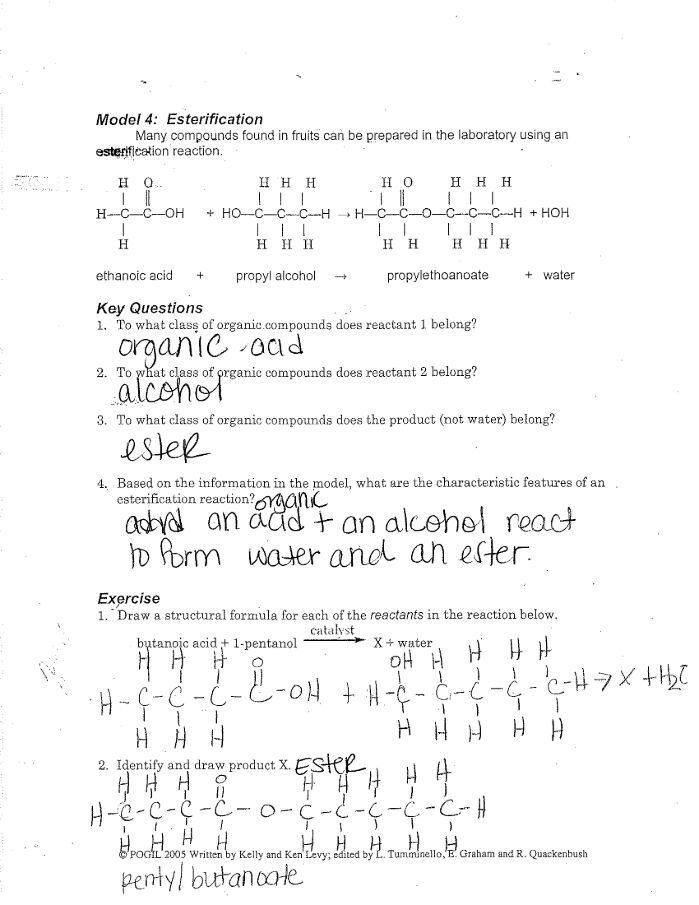 Model 4: Esterification
Many compounds found in fruits can be prepared in the laboratory using an
esterification reaction.
H O H H H H O H H H
H—C—C—OH + HO—C—C—C—H → H—C—C—O—C—C—C—H + HOH
H H H H H H H H H
ethanoic acid + propyl alcohol → propylethoanoate + water
Key Questions
1. To what class of organic compounds does reactant 1 belong?
organic acid
2. To what class of organic compounds does reactant 2 belong?
alcohol
3. To what class of organic compounds does the product (not water) belong?
ester
4. Based on the information in the model, what are the characteristic features of an
esterification reaction? organic
an acid + an alcohol react
to form water and an ester.
Exercise
1. Draw a structural formula for each of the reactants in the reaction below.
catalyst
butanoic acid + 1-pentanol → X + water
H H H O OH H H H H
H-C-C-C-C-OH + H-C-C-C-C-C-H → X + H2O
H H H H H H H H
2. Identify and draw product X. Ester
H H H O H H H H H
H-C-C-C-C-O-C-C-C-C-C-H
H H H H H H H H H
© POGIL 2005 Written by Kelly and Ken Levy; edited by L. Tumminello, E. Graham and R. Quackenbush
pentyl butanoate